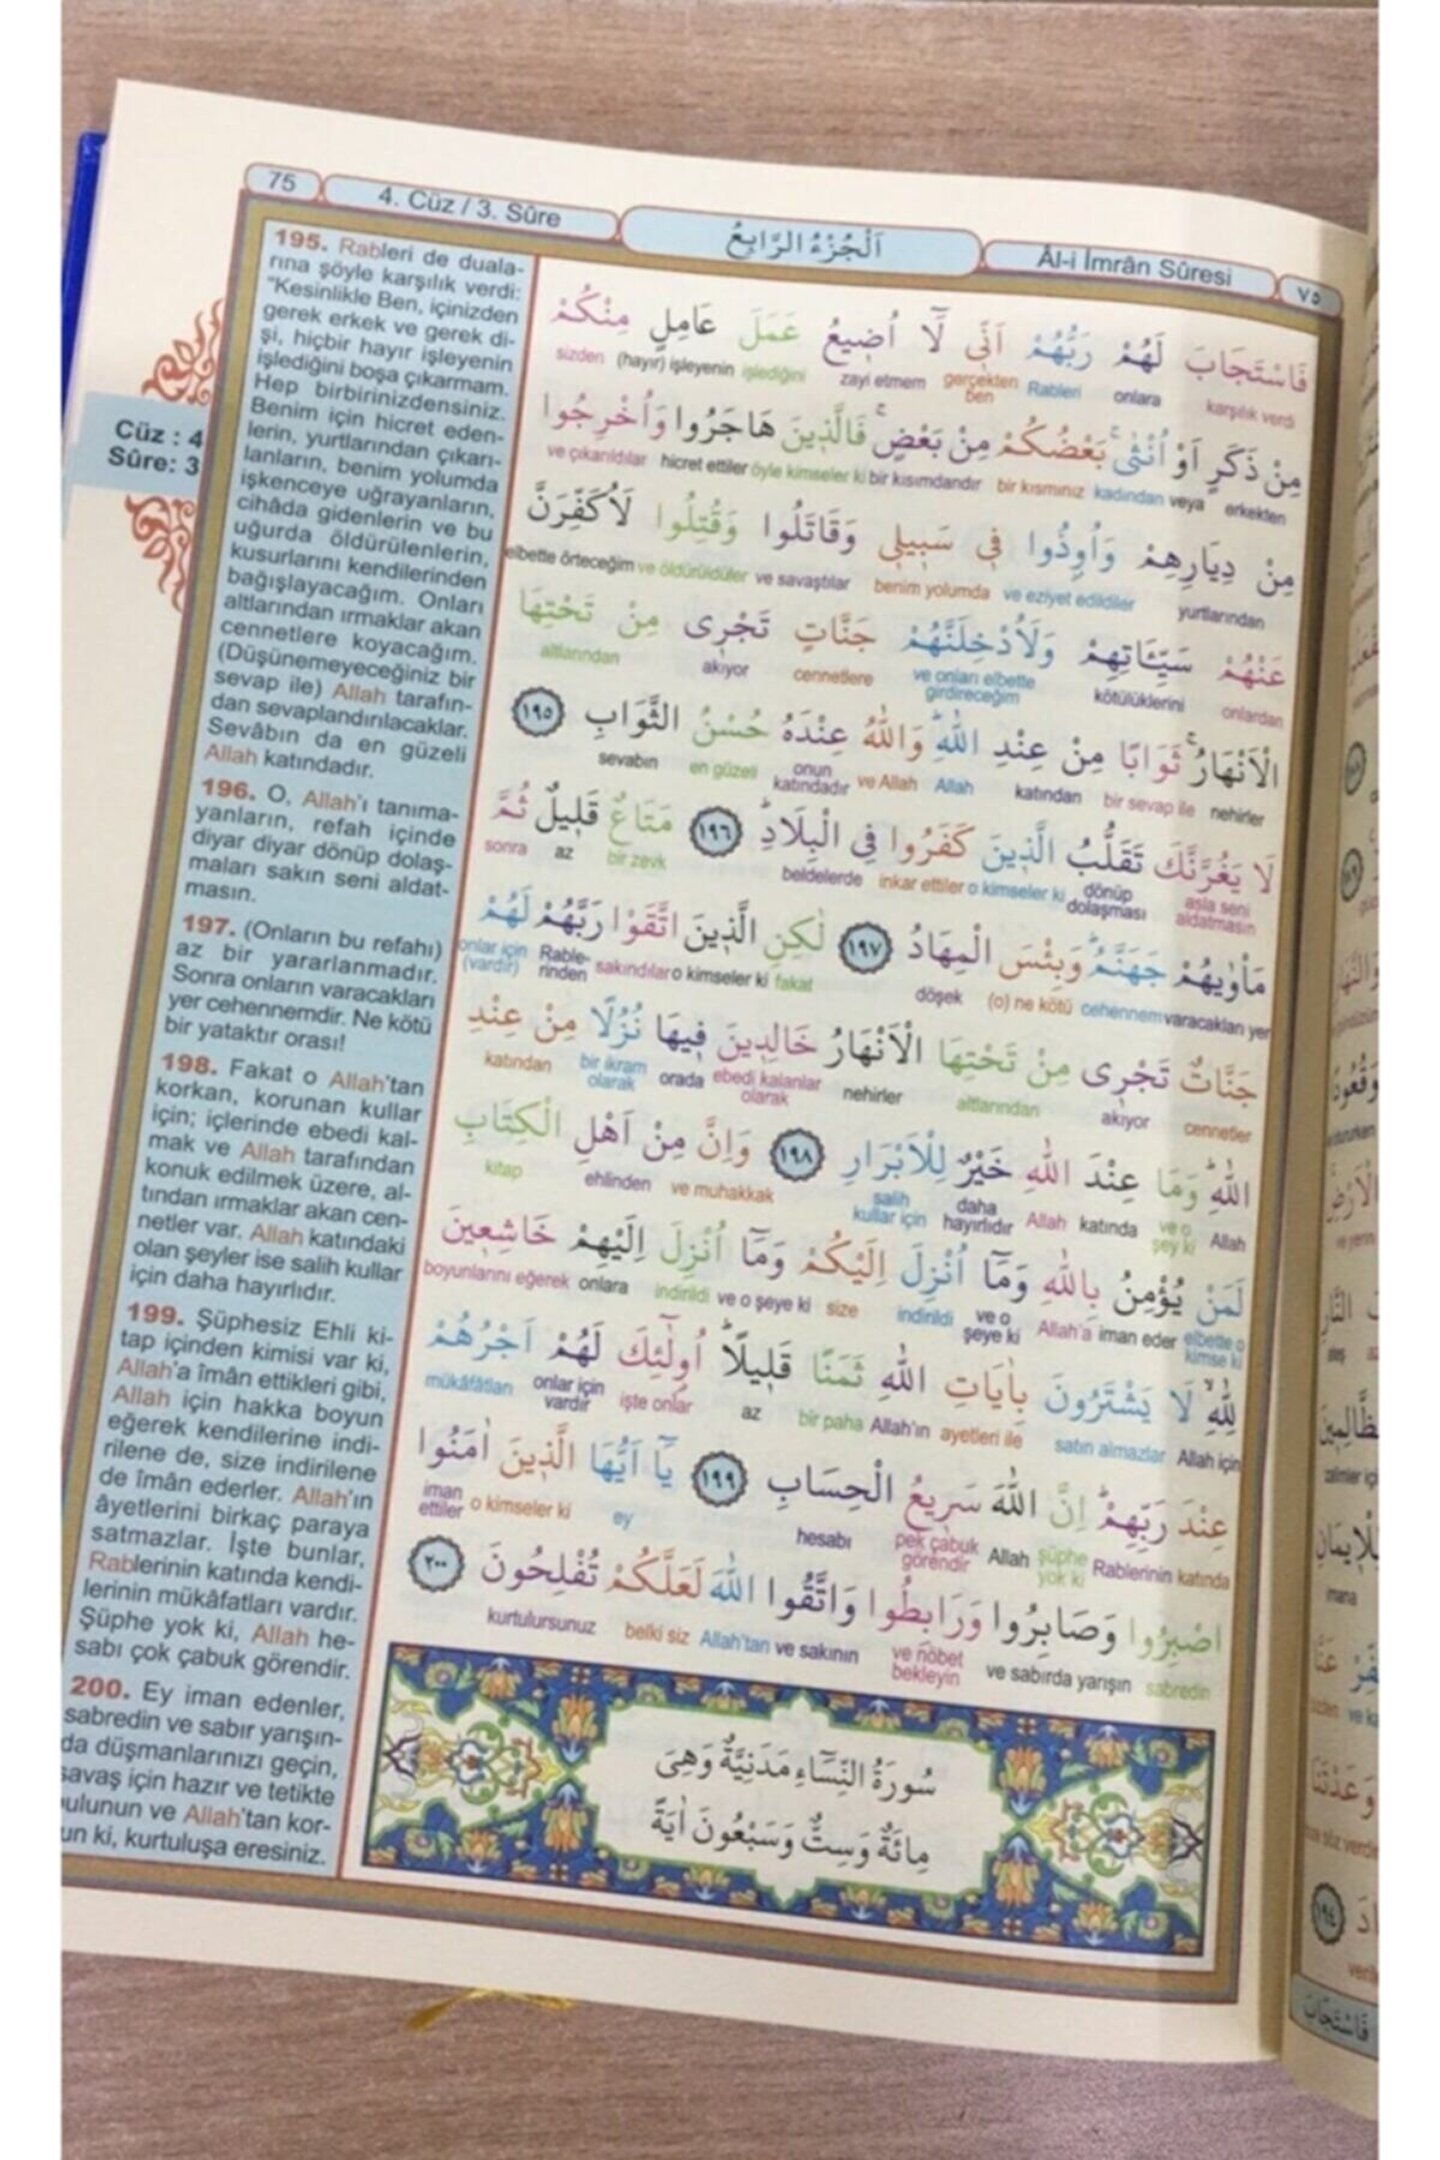 75
4. Cüz / 3. Sûre
اَلْجُزْءُ الرَّابِعُ
Âl-i İmrân Sûresi
٧٥
195. Rableri de duala-
rına şöyle karşılık verdi:
"Kesinlikle Ben, içinizden
gerek erkek ve gerek di-
şi, hiçbir hayır işleyenin
işlediğini boşa çıkarmam.
Hep birbirinizdensiniz.
Benim için hicret eden-
lerin, yurtlarından çıkarı-
lanların, benim yolumda
işkenceye uğrayanların,
cihâda gidenlerin ve bu
uğurda öldürülenlerin,
kusurlarını kendilerinden
bağışlayacağım. Onları
altlarından ırmaklar akan
cennetlere koyacağım.
(Düşünemeyeceğiniz bir
sevap ile) Allah tarafın-
dan sevaplandırılacaklar.
Sevâbın da en güzeli
Allah katındadır.
196. O, Allah'ı tanıma-
yanların, refah içinde
diyar diyar dönüp dolaş-
maları sakın seni aldat-
masın.
197. (Onların bu refahı)
az bir yararlanmadır.
Sonra onların varacakları
yer cehennemdir. Ne kötü
bir yataktır orası!
198. Fakat o Allah'tan
korkan, korunan kullar
için; içlerinde ebedi kal-
mak ve Allah tarafından
konuk edilmek üzere, al-
tından ırmaklar akan cen-
netler var. Allah katındaki
olan şeyler ise salih kullar
için daha hayırlıdır.
199. Şüphesiz Ehli ki-
tap içinden kimisi var ki,
Allah'a îmân ettikleri gibi,
Allah için hakka boyun
eğerek kendilerine indi-
rilene de, size indirilene
de îmân ederler. Allah'ın
âyetlerini birkaç paraya
satmazlar. İşte bunlar,
Rablerinin katında kendi-
lerinin mükâfatları vardır.
Şüphe yok ki, Allah he-
sabı çok çabuk görendir.
200. Ey iman edenler,
sabredin ve sabır yarışın-
da düşmanlarınızı geçin,
savaş için hazır ve tetikte
bulunun ve Allah'tan kor-
un ki, kurtuluşa eresiniz.
Cüz : 4
Sûre: 3
فَاسْتَجَابَ لَهُمْ رَبُّهُمْ اَنّٖى لَٓا اُضٖيعُ عَمَلَ عَامِلٍ مِنْكُمْ
karşılık verdi onlara Rableri gerçekten ben zayi etmem işlediğini (hayır) işleyenin sizden
مِنْ ذَكَرٍ اَوْ اُنْثٰىۚ بَعْضُكُمْ مِنْ بَعْضٍۚ فَالَّذٖينَ هَاجَرُوا وَاُخْرِجُوا
erkekten veya kadından bir kısmınız bir kısımdandır öyle kimseler ki hicret ettiler ve çıkarıldılar
مِنْ دِيَارِهِمْ وَاُوذُوا فٖى سَبٖيلٖى وَقَاتَلُوا وَقُتِلُوا لَاُكَفِّرَنَّ
yurtlarından ve eziyet edildiler benim yolumda ve savaştılar ve öldürüldüler elbette örteceğim
عَنْهُمْ سَيِّـَٔاتِهِمْ وَلَاُدْخِلَنَّهُمْ جَنَّاتٍ تَجْرٖى مِنْ تَحْتِهَا
onlardan kötülüklerini ve onları elbette girdireceğim cennetlere akıyor altlarından
الْاَنْهَارُۚ ثَوَابًا مِنْ عِنْدِ اللّٰهِؕ وَاللّٰهُ عِنْدَهُ حُسْنُ الثَّوَابِ ﴿١٩٥﴾
nehirler bir sevap ile katından Allah ve Allah onun katındadır en güzeli sevabın
لَا يَغُرَّنَّكَ تَقَلُّبُ الَّذٖينَ كَفَرُوا فِى الْبِلَادِؕ ﴿١٩٦﴾ مَتَاعٌ قَلٖيلٌ ثُمَّ
asla seni aldatmasın dönüp dolaşması o kimseler ki inkar ettiler beldelerde bir zevk az sonra
مَأْوٰيهُمْ جَهَنَّمُؕ وَبِئْسَ الْمِهَادُ ﴿١٩٧﴾ لٰكِنِ الَّذٖينَ اتَّقَوْا رَبَّهُمْ لَهُمْ
varacakları yer cehennem (o) ne kötü döşek fakat o kimseler ki sakındılar Rable-rinden onlar için (vardır)
جَنَّاتٌ تَجْرٖى مِنْ تَحْتِهَا الْاَنْهَارُ خَالِدٖينَ فٖيهَا نُزُلًا مِنْ عِنْدِ
cennetler akıyor altlarından nehirler ebedi kalanlar olarak orada bir ikram olarak katından
اللّٰهِؕ وَمَا عِنْدَ اللّٰهِ خَيْرٌ لِلْاَبْرَارِ ﴿١٩٨﴾ وَاِنَّ مِنْ اَهْلِ الْكِتَابِ
Allah ve o şey ki katında Allah daha hayırlıdır salih kullar için ve muhakkak ehlinden kitap
لَمَنْ يُؤْمِنُ بِاللّٰهِ وَمَٓا اُنْزِلَ اِلَيْكُمْ وَمَٓا اُنْزِلَ اِلَيْهِمْ خَاشِعٖينَ
elbette o kimse ki iman eder Allah'a ve o şeye ki indirildi size ve o şeye ki indirildi onlara boyunlarını eğerek
لِلّٰهِۙ لَا يَشْتَرُونَ بِاٰيَاتِ اللّٰهِ ثَمَنًا قَلٖيلًاؕ اُولٰٓئِكَ لَهُمْ اَجْرُهُمْ
Allah için satın almazlar ayetleri ile Allah'ın bir paha az işte onlar onlar için vardır mükâfatları
عِنْدَ رَبِّهِمْؕ اِنَّ اللّٰهَ سَرٖيعُ الْحِسَابِ ﴿١٩٩﴾ يَٓا اَيُّهَا الَّذٖينَ اٰمَنُوا
katında Rablerinin şüphe yok ki Allah pek çabuk görendir hesabı ey o kimseler ki iman ettiler
اصْبِرُوا وَصَابِرُوا وَرَابِطُوا وَاتَّقُوا اللّٰهَ لَعَلَّكُمْ تُفْلِحُونَ ﴿٢٠٠﴾
sabredin ve sabırda yarışın ve nöbet bekleyin ve sakının Allah'tan belki siz kurtulursunuz
سُورَةُ النِّسَٓاءِ مَدَنِيَّةٌ وَهِىَ
مِائَةٌ وَسِتٌّ وَسَبْعُونَ اٰيَةً
فَاسْتَجَابَ